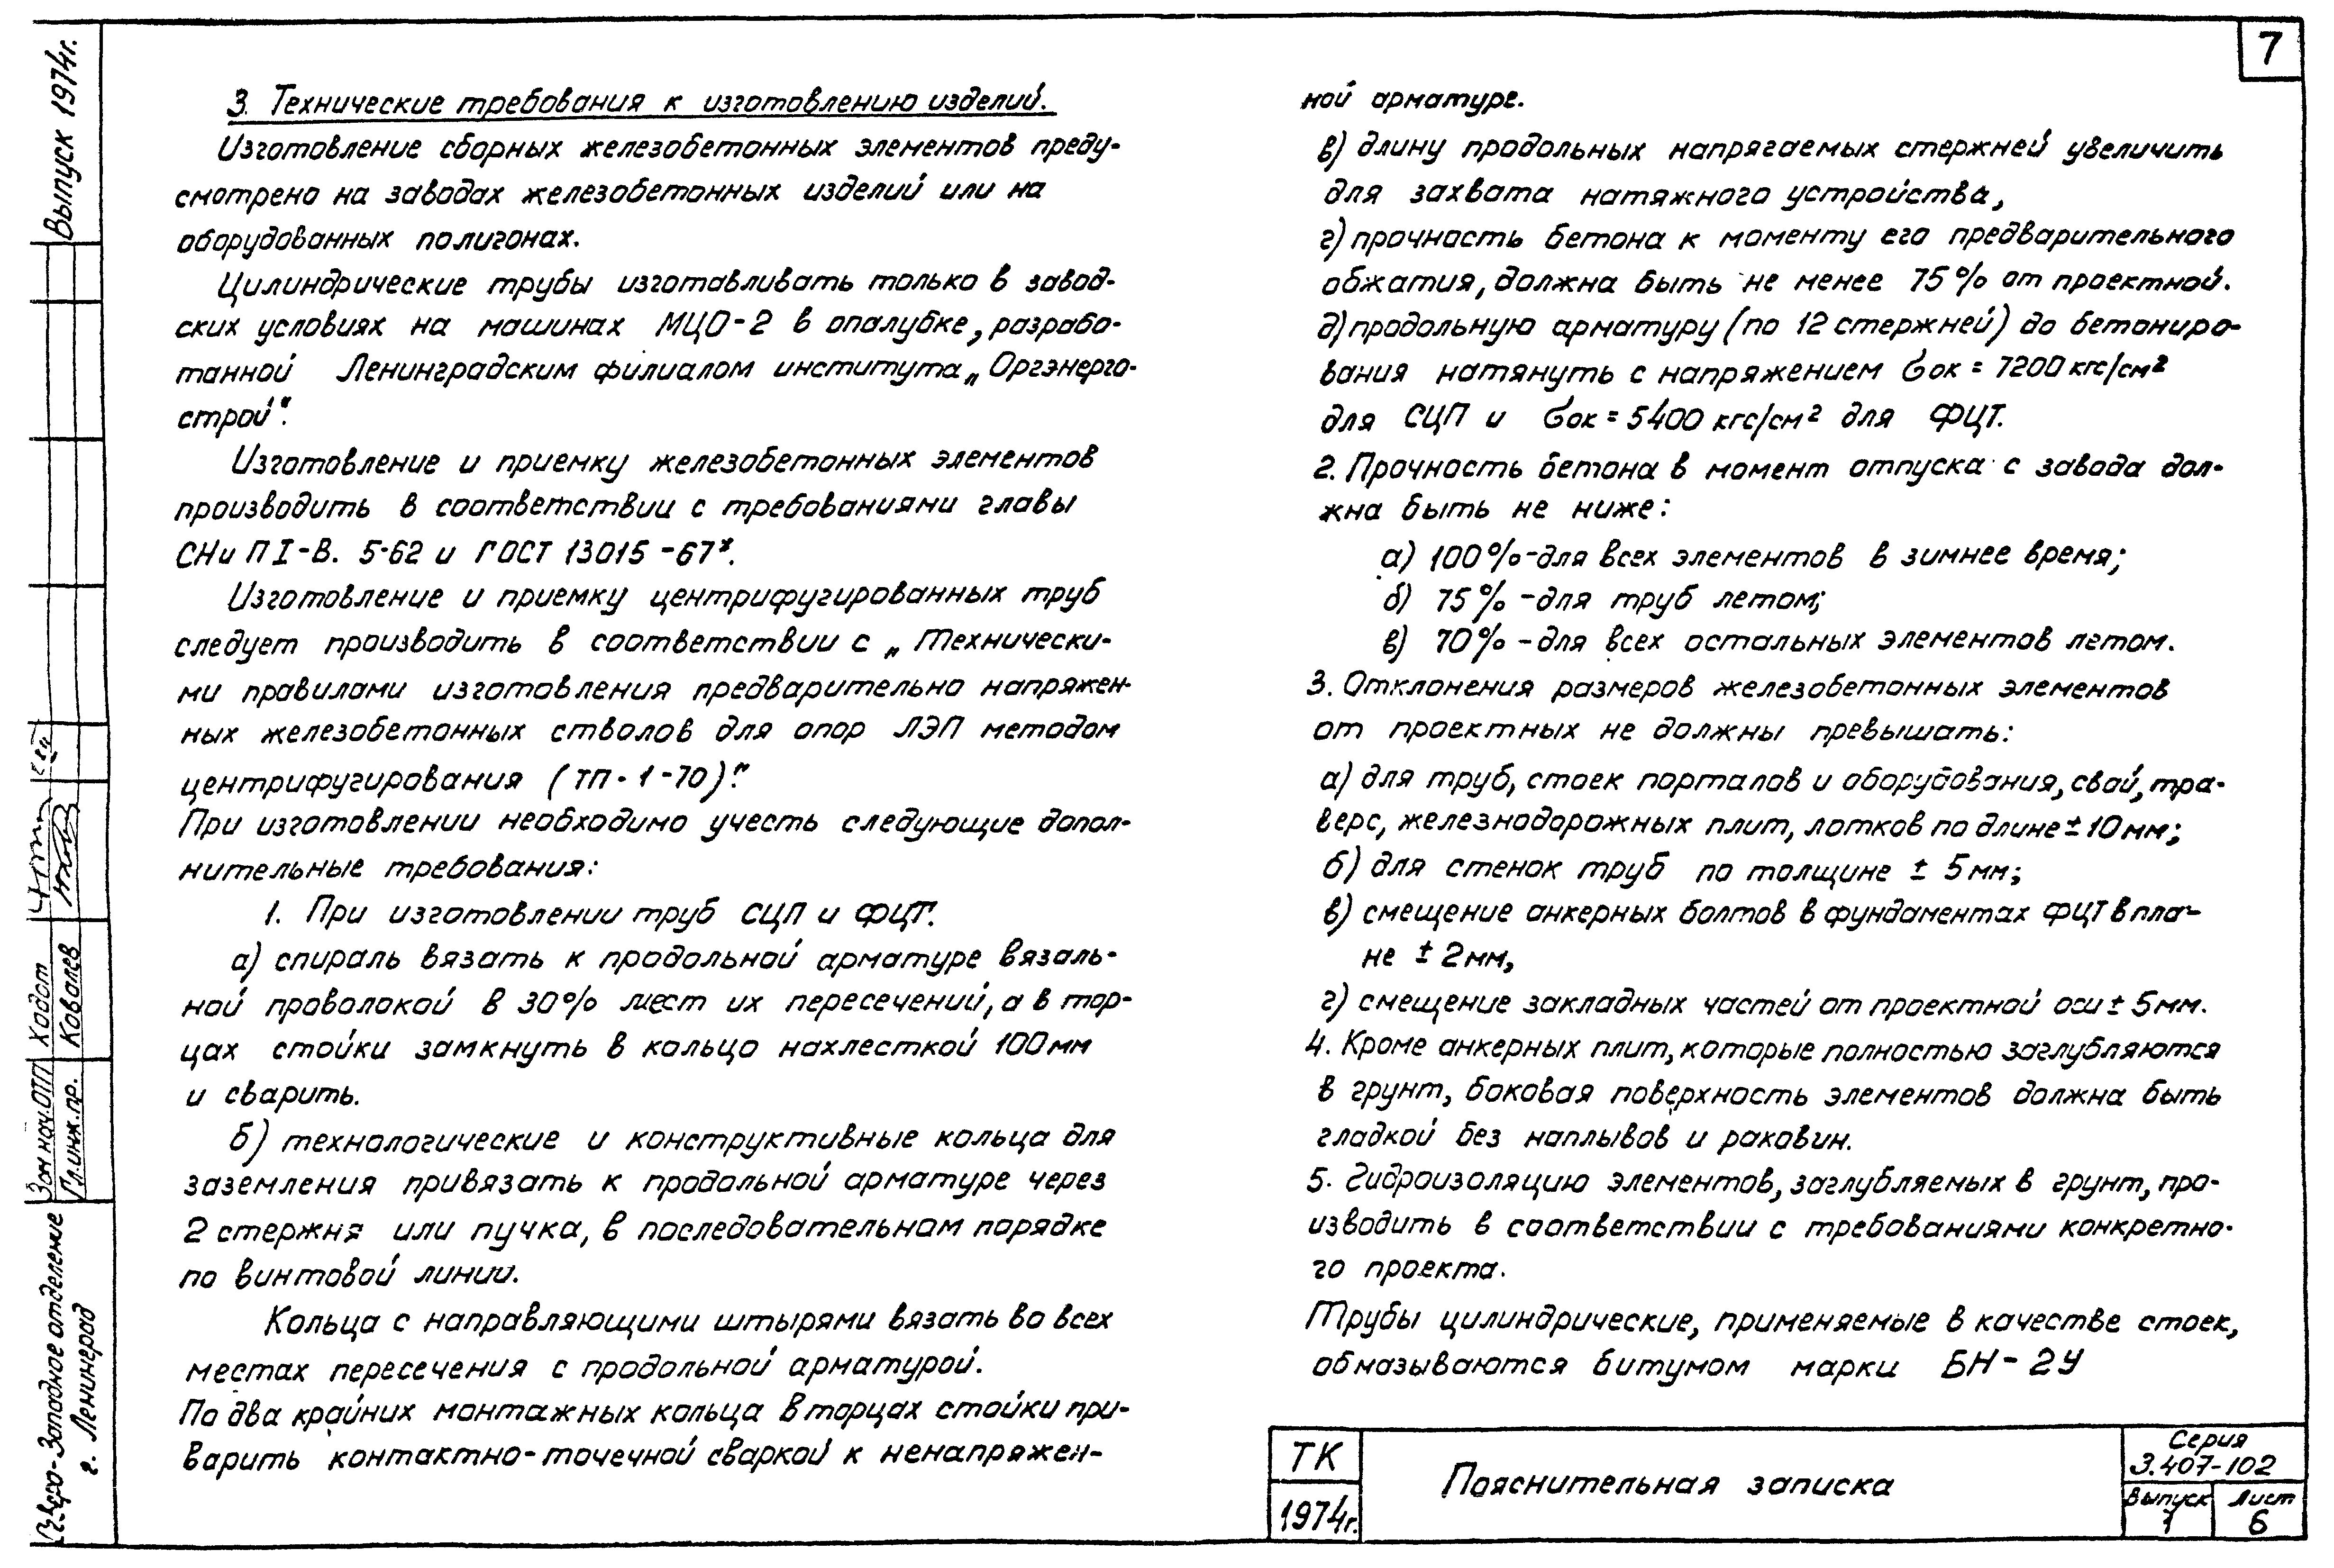 7
3. Технические требования к изготовлению изделий.
Изготовление сборных железобетонных элементов преду-
смотрено на заводах железобетонных изделий или на
оборудованных полигонах.
Цилиндрические трубы изготавливать только в завод-
ских условиях на машинах МЦО-2 в опалубке, разрабо-
танной Ленинградским филиалом института „Оргэнерго-
строй".
Изготовление и приемку железобетонных элементов
производить в соответствии с требованиями главы
СНиП I-В. 5-62 и ГОСТ 13015-67*.
Изготовление и приемку центрифугированных труб
следует производить в соответствии с „Технически-
ми правилами изготовления предварительно напряжен-
ных железобетонных стволов для опор ЛЭП методом
центрифугирования (ТП-1-70)".
При изготовлении необходимо учесть следующие допол-
нительные требования:
1. При изготовлении труб СЦП и ФЦТ.
а) спираль вязать к продольной арматуре вязаль-
ной проволокой в 30% мест их пересечений, а в тор-
цах стойки замкнуть в кольцо нахлесткой 100мм
и сварить.
б) технологические и конструктивные кольца для
заземления привязать к продольной арматуре через
2 стержня или пучка, в последовательном порядке
по винтовой линии.
Кольца с направляющими штырями вязать во всех
местах пересечения с продольной арматурой.
По два крайних монтажных кольца в торцах стойки при-
варить контактно-точечной сваркой к ненапряжен-
ной арматуре.
в) длину продольных напрягаемых стержней увеличить
для захвата натяжного устройства,
г) прочность бетона к моменту его предварительного
обжатия, должна быть не менее 75% от проектной.
д) продольную арматуру (по 12 стержней) до бетониро-
вания натянуть с напряжением σок = 7200 кгс/см²
для СЦП и σок = 5400 кгс/см² для ФЦТ.
2. Прочность бетона в момент отпуска с завода дол-
жна быть не ниже:
а) 100% - для всех элементов в зимнее время;
б) 75% - для труб летом;
в) 70% - для всех остальных элементов летом.
3. Отклонения размеров железобетонных элементов
от проектных не должны превышать:
а) для труб, стоек порталов и оборудования, свай, тра-
верс, железнодорожных плит, лотков по длине ± 10мм;
б) для стенок труб по толщине ± 5мм;
в) смещение анкерных болтов в фундаментах ФЦТ в пла-
не ± 2мм,
г) смещение закладных частей от проектной оси ± 5мм.
4. Кроме анкерных плит, которые полностью заглубляются
в грунт, боковая поверхность элементов должна быть
гладкой без наплывов и раковин.
5. Гидроизоляцию элементов, заглубляемых в грунт, про-
изводить в соответствии с требованиями конкретно-
го проекта.
Трубы цилиндрические, применяемые в качестве стоек,
обмазываются битумом марки БН-2У
ТК
1974г.
Пояснительная записка
Серия
3.407-102
Выпуск
1
Лист
6
Выпуск 1974г.
Зам нач. ОТП Ходот
Гл. инж. пр. Ковалев
Северо-Западное отделение
г. Ленинград